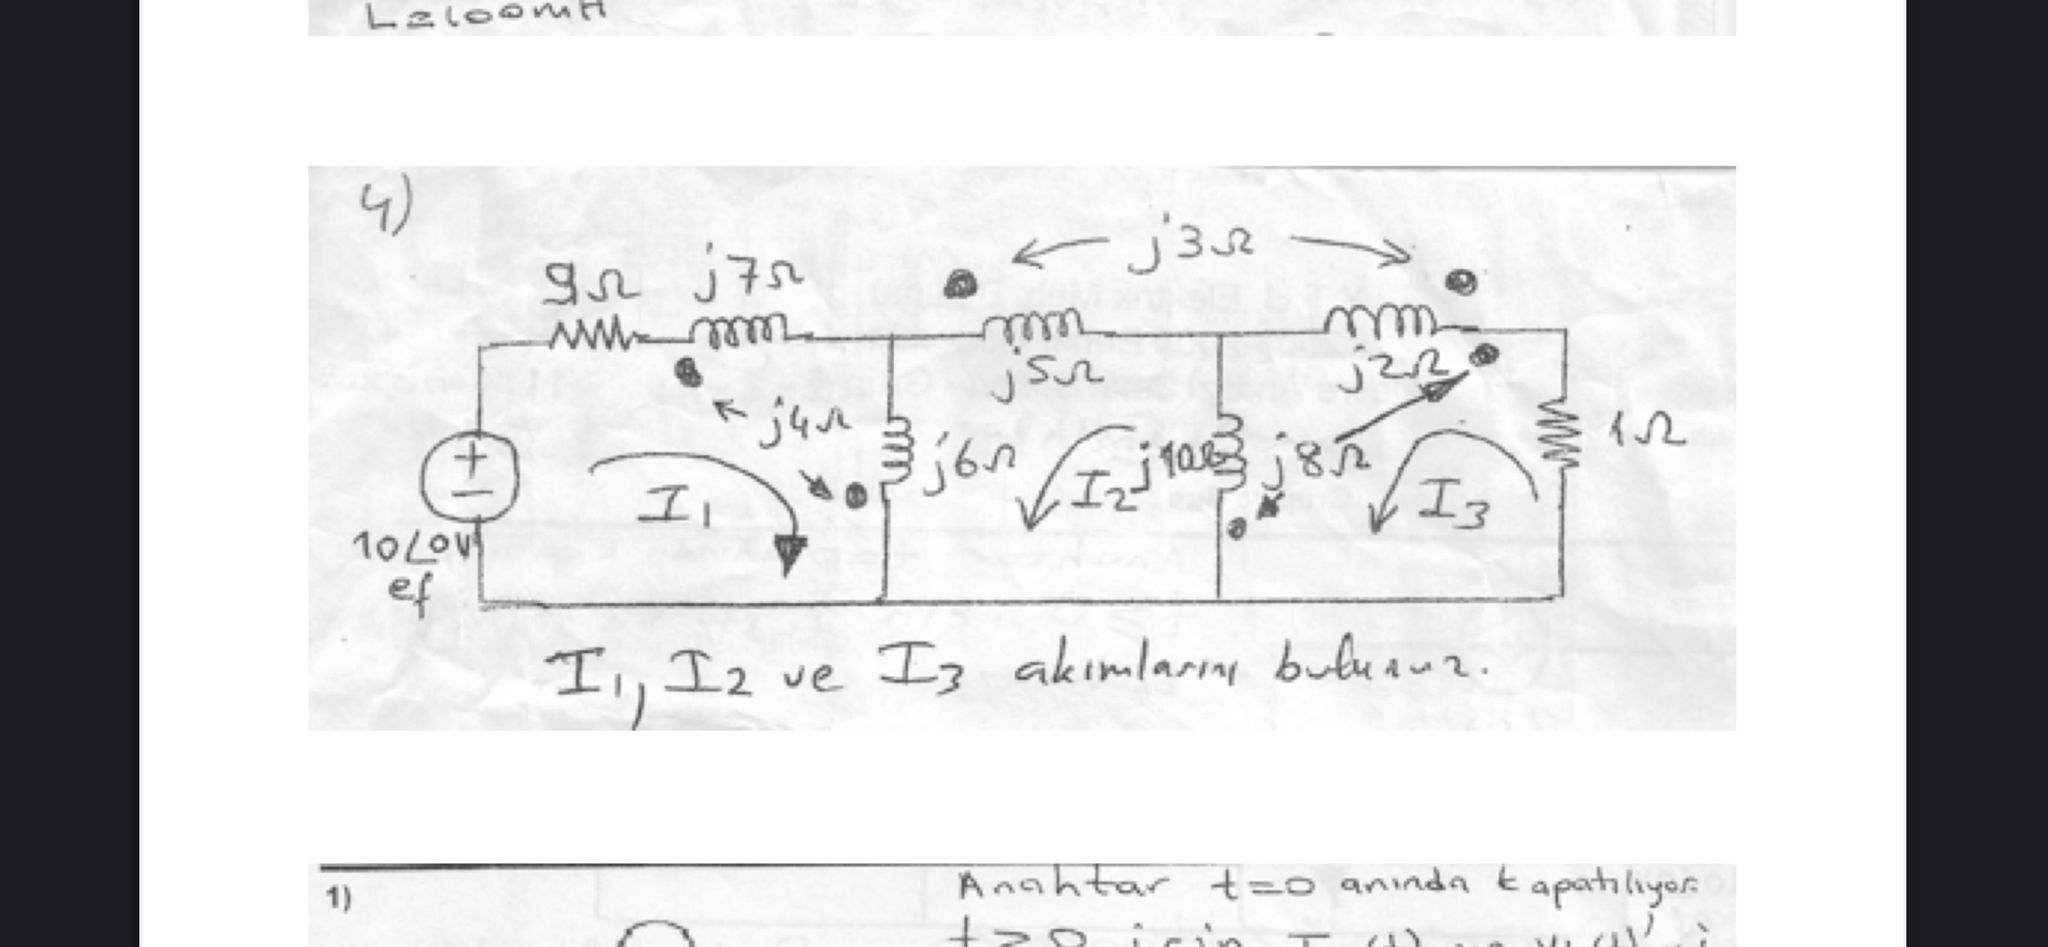 L=100mH
4)
9Ω j7Ω j3Ω
j5Ω j2Ω
j4Ω j6Ω j10Ω j8Ω 1Ω
I₁ I₂ I₃
10∠0 V
ef
I₁, I₂ ve I₃ akımlarını bulunuz.
1) Anahtar t=0 anında kapatılıyor.